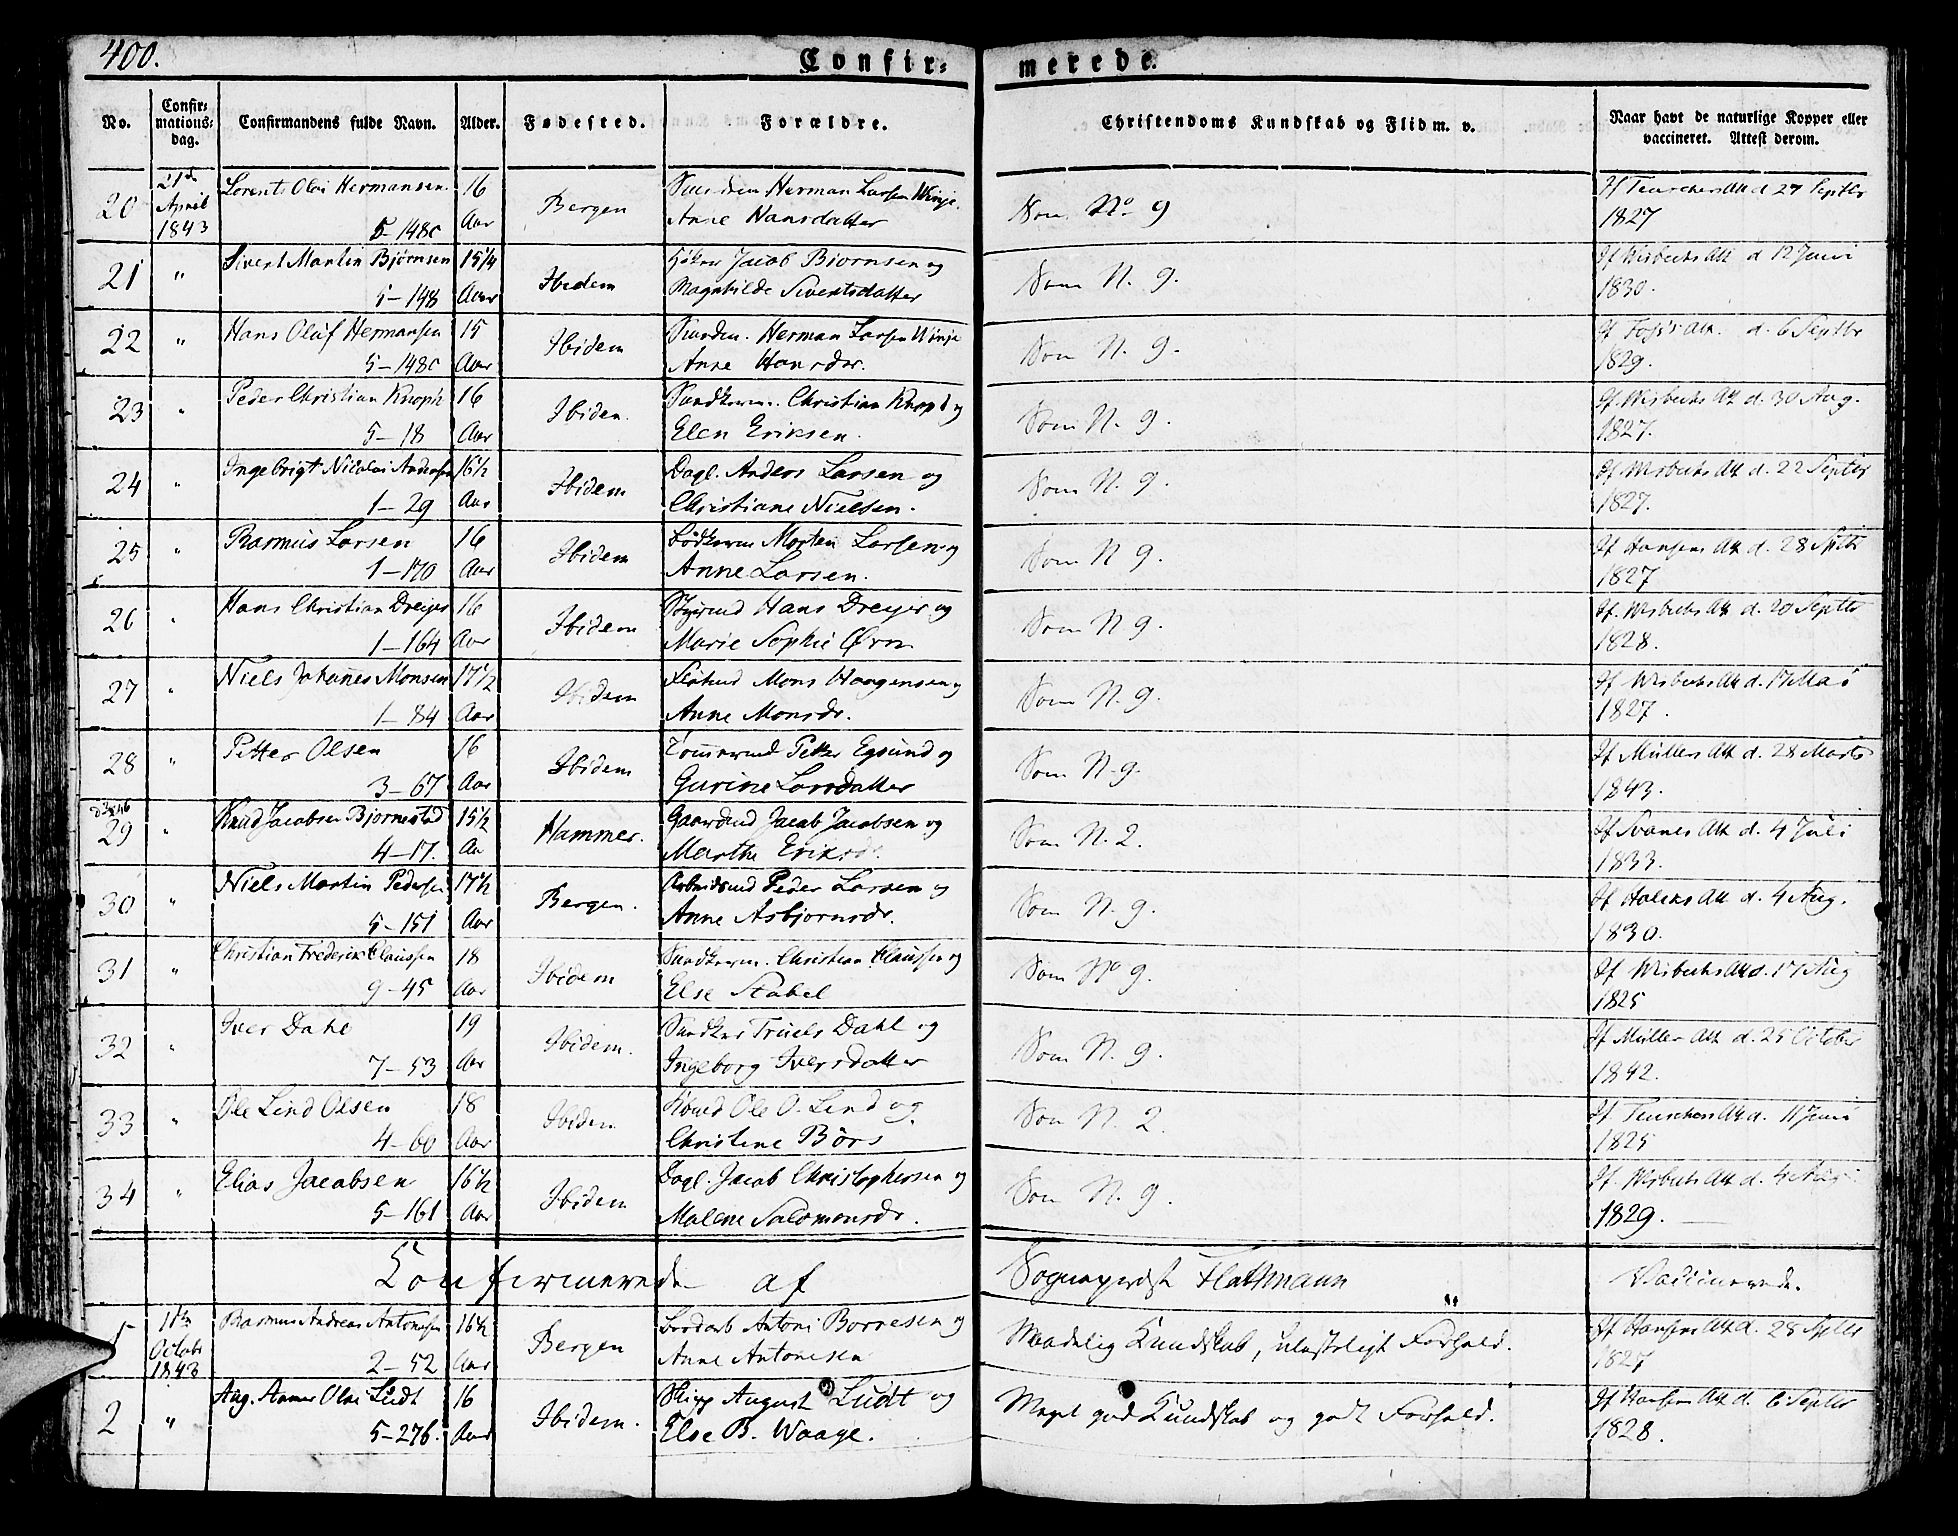 400.
Confir= merede.
No.
Confir=
mations=
dag.
Confirmandens fulde Navn.
Alder.
Fødested.
Forældre.
Christendoms Kundskab og Flid m. v.
Naar havt de naturlige Kopper eller
vaccineret. Attest derom.
20 21de Lorents Olai Hermansen 16 Bergen Herman Larsen Winje. Som No. 9 If Teuschers Att d 27 Septbr
April 1843 5-148c Aar Anne Hansdatter 1827
21 " Sivert Martin Bjørnsen 15 1/4 Ibidem Jacob Bjørnsen og Som N. 9. If Wisbechs Att d 12 Juni
5-148 Aar Magnhilde Sivertsdatter 1830.
22 " Hans Oluf Hermansen 15 Ibidem Herman Larsen Winje Som N. 9. If Att. d. 6 Septbr
5-148c Aar Anne Hansdr. 1829.
23 " Peder Christian Knoph 16 Ibidem. Christian Knoph og Som N. 9. If. Wisbechs Att d. 30 Aug.
5-18 Aar Elen Eriksen. 1827.
24 " Ingebrigt Nicolai Andersen 16 1/2 Ibidem Dagl. Anders Larsen og Som N. 9. If Wisbechs Att d. 22 Septbr
1-29 Aar Christiane Nielsen. 1827.
25 " Rasmus Larsen 16 Ibidem Bødkersv Morten Larsen og Som N 9. If Hansens Att d. 28 Sptbr
1-170 Aar Anne Larsen. 1827
26 " Hans Christian Dreyer 16 Ibidem Hans Dreyer og Som N 9. If. Wisbechs Att d. 20 Septbr
1-164 Aar Marie Sophie Ørn 1828.
27 " Niels Johannes Monsen 17 1/2 Ibidem Mons Haagensen og Som N. 9. If Wisbechs Att d. 17 Mai
1-84 Aar Anne Monsdr. 1827.
28 " Petter Olsen 16 Ibidem Petter Egsund og Som N. 9. If Müllers Att d. 28 Marts
3-67 Aar Gurine Larsdatter 1843.
29 " Knud Jacobsen Bjørnestad 15 1/2 Hammer. Gaardmd Jacob Jacobsen og Som N. 2. If Svanes Att d. 4 Juli
4-17. Aar Marthe Eriksdr. 1833.
30 " Niels Martin Pedersen 17 1/2 Bergen. Arbeidsmd Peder Larsen og Som N. 9. If Holcks Att d. 4 Aug.
5-151 Aar Anne Asbjørnsdr. 1830.
31 " Christian Frederik Claussen 18 Ibidem Christian Claussen og Som No 9. If Wisbechs Att d. 17 Aug
9-45 Aar Else Stabel 1825
32 " Iver Dahl 19 Ibidem. Truels Dahl og Som N. 9. If Müllers Att d. 25 October
7-53 Aar Ingeborg Iversdatter 1842.
33 " Ole Lind Olsen 18 Ibidem Ole O. Lind og Som N. 2. If. Teuschers Att d. 11 Juni
4-60 Aar Christine Børs 1825
34 " Elias Jacobsen 16 1/2 Ibidem Dagl. Jacob Christophersen og Som N. 9. If. Wisbechs Att d. 4
5-161 Aar Malene Salomonsdr. 1829.
Confirmerede af Sognepræst Flottmann Vaccinerede.
1 1ste Rasmus Andreas Antonesen 16 1/2 Bergen Antoni Bornesen og Maadelig Kundskab, ulasteligt Forhold. If Hansens Att d. 28 Sptbr
Octobr 1843 2-52 Aar Anne Antonesen 1827
2 " Aug. Olai Ludt 16 Ibidem. Skipp August Ludt og Meget god Kundskab og godt Forhold. If Hansens Att d. 6 Septbr
5-276. Aar Else B. Waage. 1828.